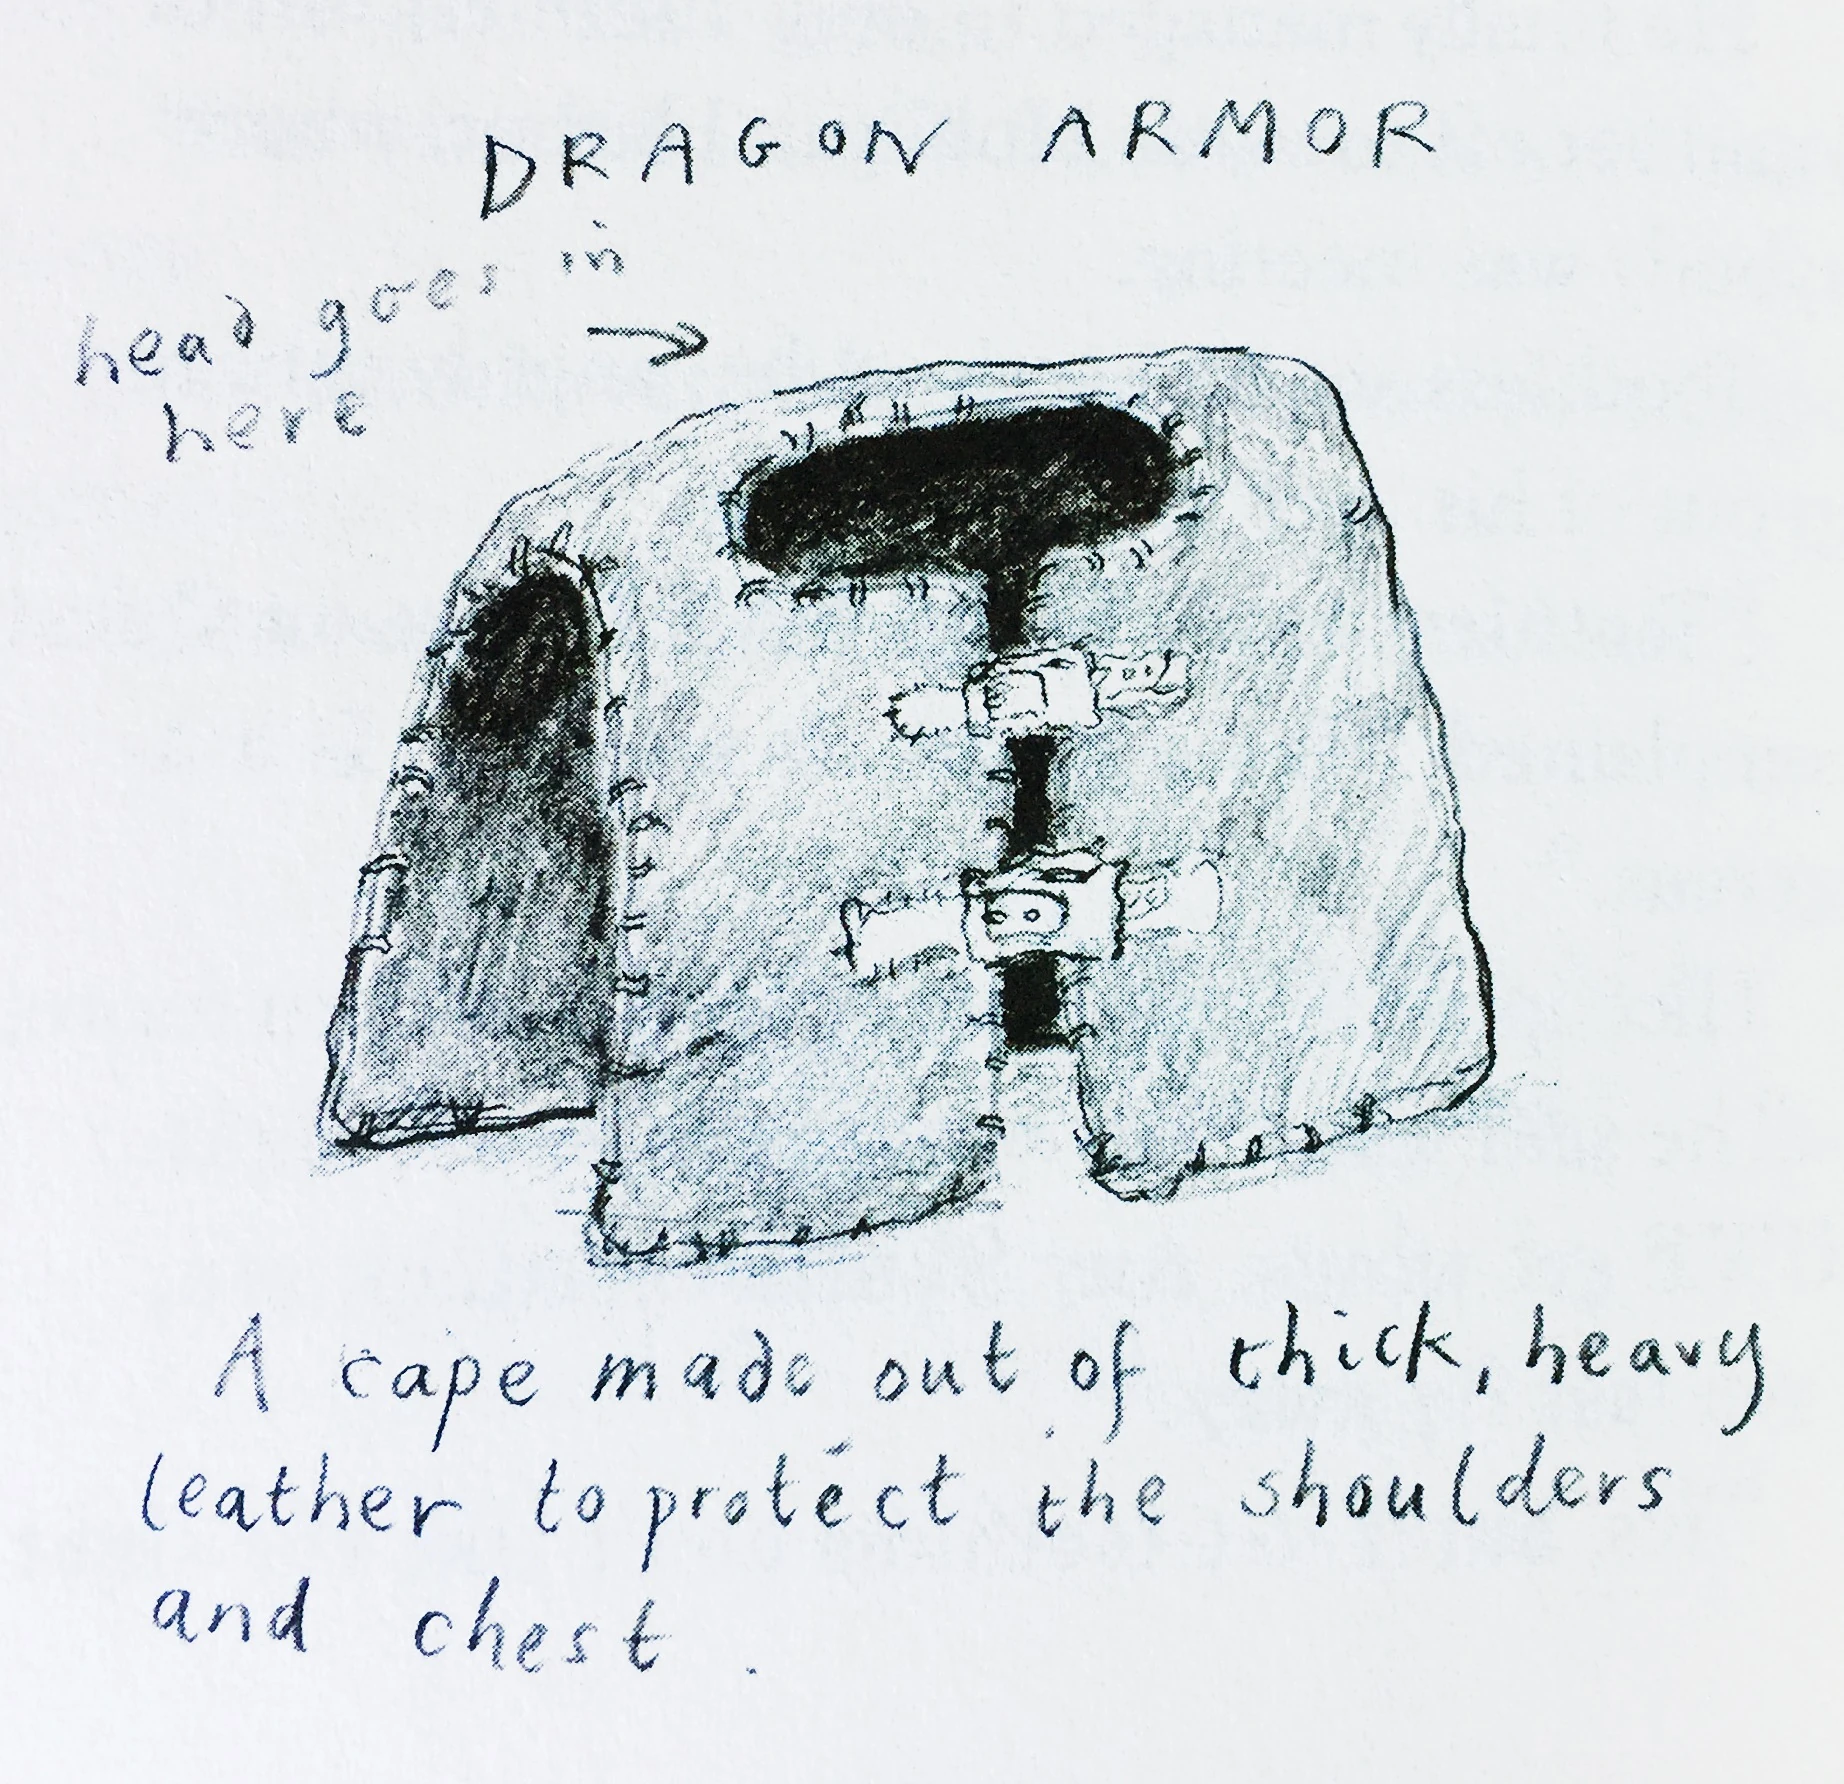 DRAGON ARMOR
head goes in
here
A cape made out of thick, heavy
leather to protect the shoulders
and chest.